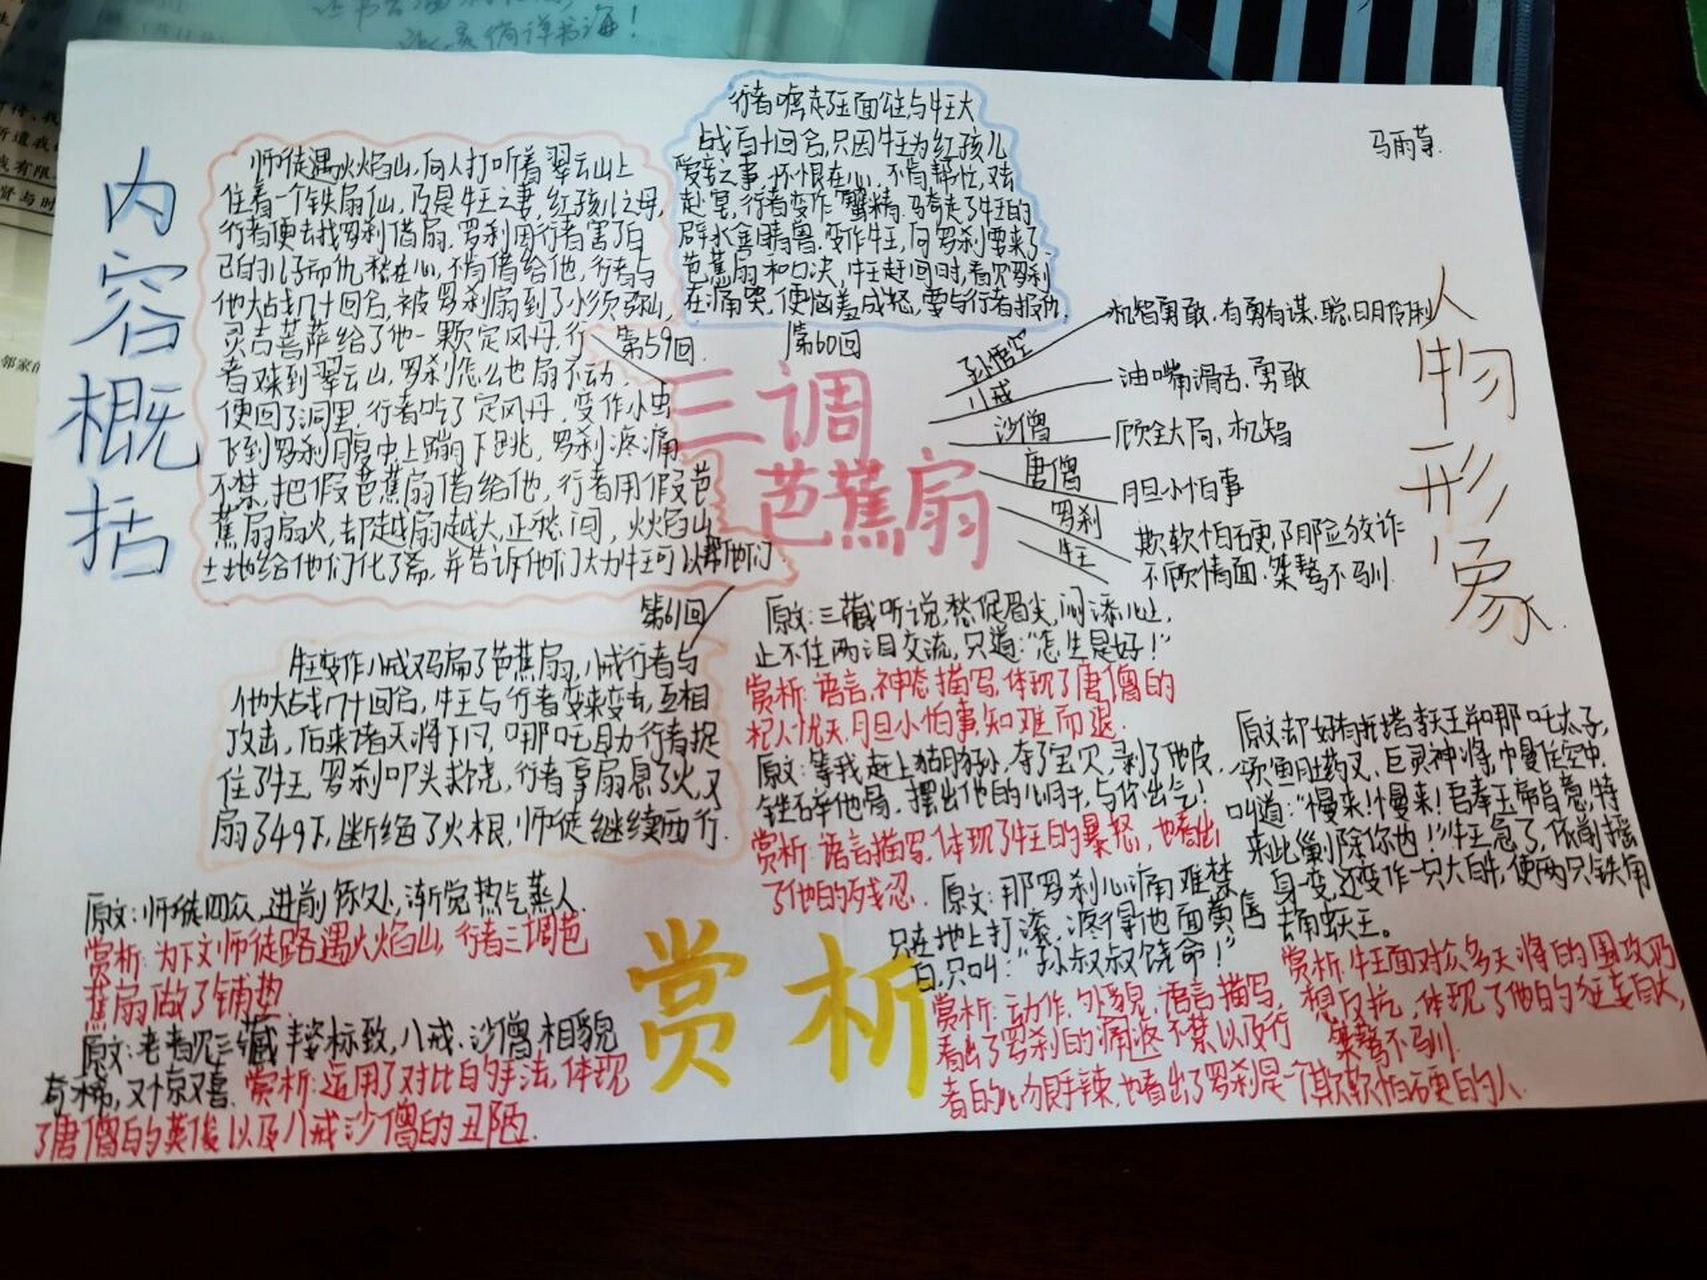 马雨
内容概括
师徒遇火焰山,向人打听着翠云山上
住着一个铁扇仙,乃是牛王之妻,红孩儿之母,
行者便去找罗刹借扇.罗刹因行者害了自
己的儿子而仇愁在心,不肯借给他,行者与
他大战几十回合,被罗刹扇到了小须弥山,
灵吉菩萨给了他一颗定风丹.行
者又来到翠云山,罗刹怎么也扇不动,
便回了洞里,行者吃了定风丹,变作小虫
飞到罗刹腹中上蹦下跳,罗刹疼痛
不禁,把假芭蕉扇借给他,行者用假芭
蕉扇扇火,却越扇越大,正愁间,火焰山
土地给他们化了斋,并告诉他们大力牛王可以帮他们
第59回
行者唬走了玉面公主,与牛王大
战百十回合,只因牛王为红孩儿
受妾之事,怀恨在心,不肯帮忙,又去
赴宴,行者变作蟹精,骗走了牛王的
辟水金睛兽,变作牛王,向罗刹要来了
芭蕉扇和口决,牛王赶回时,看见罗刹
在痛哭,便恼羞成怒,要与行者报仇.
第60回
三调
芭蕉扇
第61回
牛王变作八戒又骗了芭蕉扇,八戒行者与
他大战几十回合,牛王与行者变来变去,互相
攻击,后来诸天将下凡,哪吒助行者捉
住了牛王,罗刹叩头求饶,行者拿扇息了火,又
扇了49下,断绝了火根,师徒继续西行.
人物形象
孙悟空 机智勇敢.有勇有谋.聪明伶俐
八戒 油嘴滑舌、勇敢
沙僧 顾全大局、机智
唐僧 胆小怕事
罗刹 欺软怕硬,阴险狡诈
牛王 不顾情面.桀骜不驯.
原文:三藏听说,愁促眉尖,闷添心上,
止不住两泪交流,只道:“怎生是好!”
赏析:语言、神态描写,体现了唐僧的
杞人忧天、胆小怕事,知难而退.
原文:等我赶上猢狲,夺了宝贝,剥了他皮,
锉碎他骨,摆出他的心肝,与你出气!
赏析:语言描写,体现了牛王的暴怒,也看出
了他的残忍.
原文:那罗刹心痛难禁,
只在地上打滚,疼得他面黄唇
白,只叫:“孙叔叔饶命!”
赏析:动作,外貌,语言描写,
看出了罗刹的疼痛不禁以及行
者的心狠手辣,也看出了罗刹是一个欺软怕硬的人.
原文:却好有托塔李天王并哪吒太子,
领鱼肚药叉、巨灵神将,幔住空中.
叫道:“慢来!慢来!吾奉玉帝旨意,特
来此剿除你也!”牛王急了,依前摇
身一变,还变作一只大白牛,使两只铁角
去角蚨王。
赏析:牛王面对众多天将的围攻仍
想反抗,体现了他的狂妄自大,
桀骜不驯.
赏析
原文:师徒四众,进前行处,渐觉热气蒸人.
赏析:为下文师徒路遇火焰山,行者三调芭
蕉扇做了铺垫.
原文:老者见三藏丰姿标致,八戒、沙僧相貌
奇稀,又惊又喜.赏析:运用了对比的手法,体现
了唐僧的英俊以及八戒沙僧的丑陋.